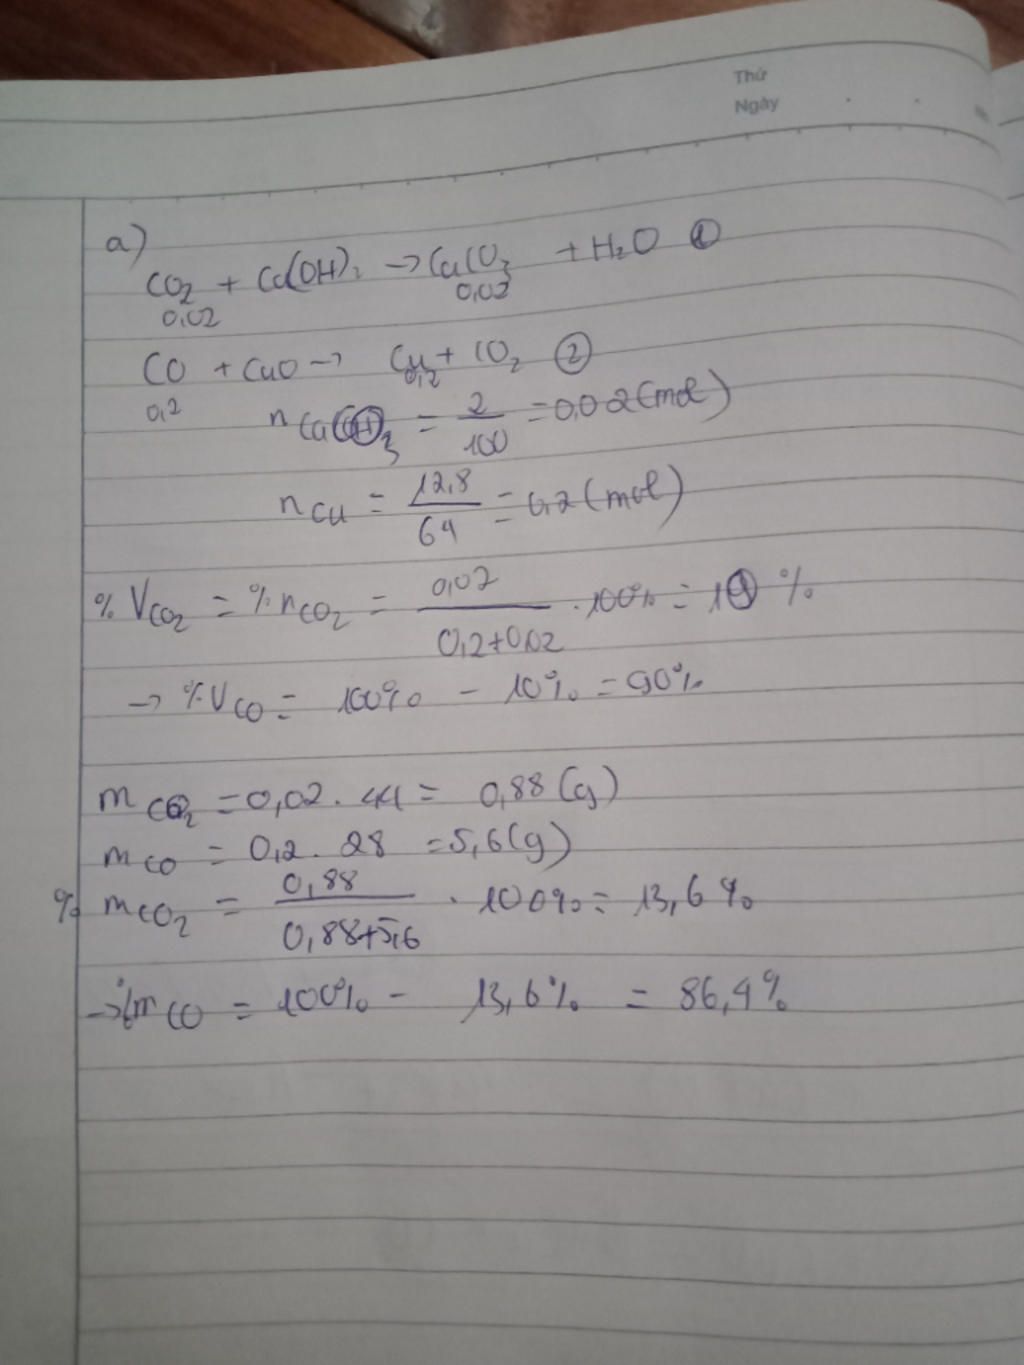 Thứ
Ngày
a)
CO2 + Ca(OH)2 → CaCO3 + H2O ①
0,02 0,02
CO + CuO → Cu + CO2 ②
0,2 0,2
nCaCO3 = 2/100 = 0,02 (mol)
nCu = 12,8/64 = 0,2 (mol)
% VCO2 = % nCO2 = 0,02/(0,2+0,02) . 100% = 10 %
→ % VCO = 100% - 10% = 90%
mCO2 = 0,02 . 44 = 0,88 (g)
mCO = 0,2 . 28 = 5,6 (g)
% mCO2 = 0,88/(0,88+5,6) . 100% = 13,6 %
→ % mCO = 100% - 13,6% = 86,4%